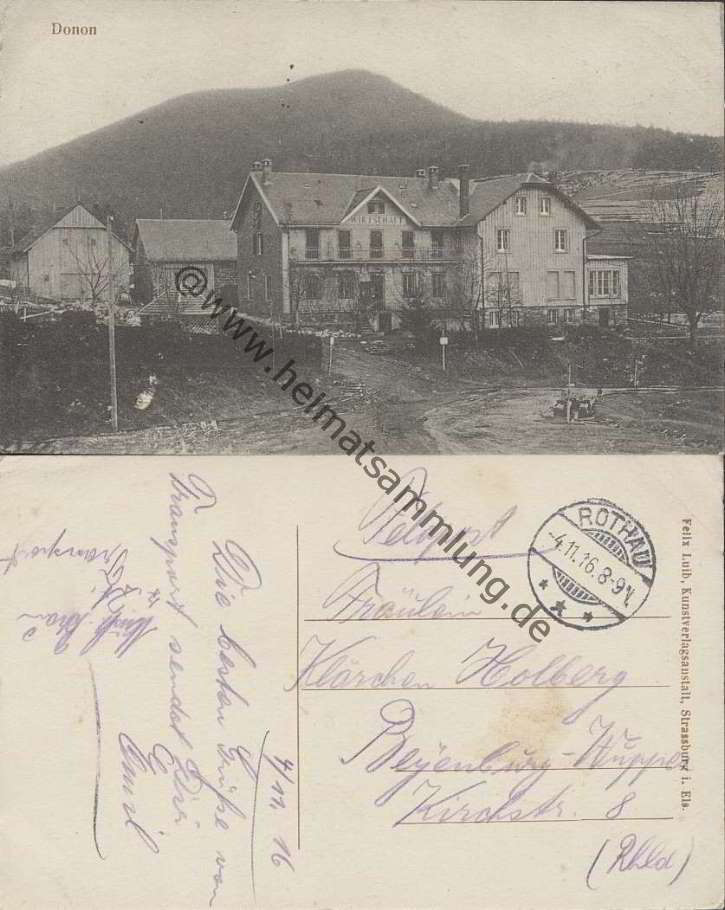 Donon
WIRTSCHAFT
@www.heimatsammlung.de
Feldpost
ROTHAU
-4.11.16.8-9V.
Fräulein
Klärchen Holberg
Beyenburg-Wuppe
Kirchstr. 8
(Rhld)
Felix Luib, Kunstverlagsanstalt, Strassburg i. Els.
4/11. 16
Die besten Grüße von
Transport sendet Dir
Emil
Transport